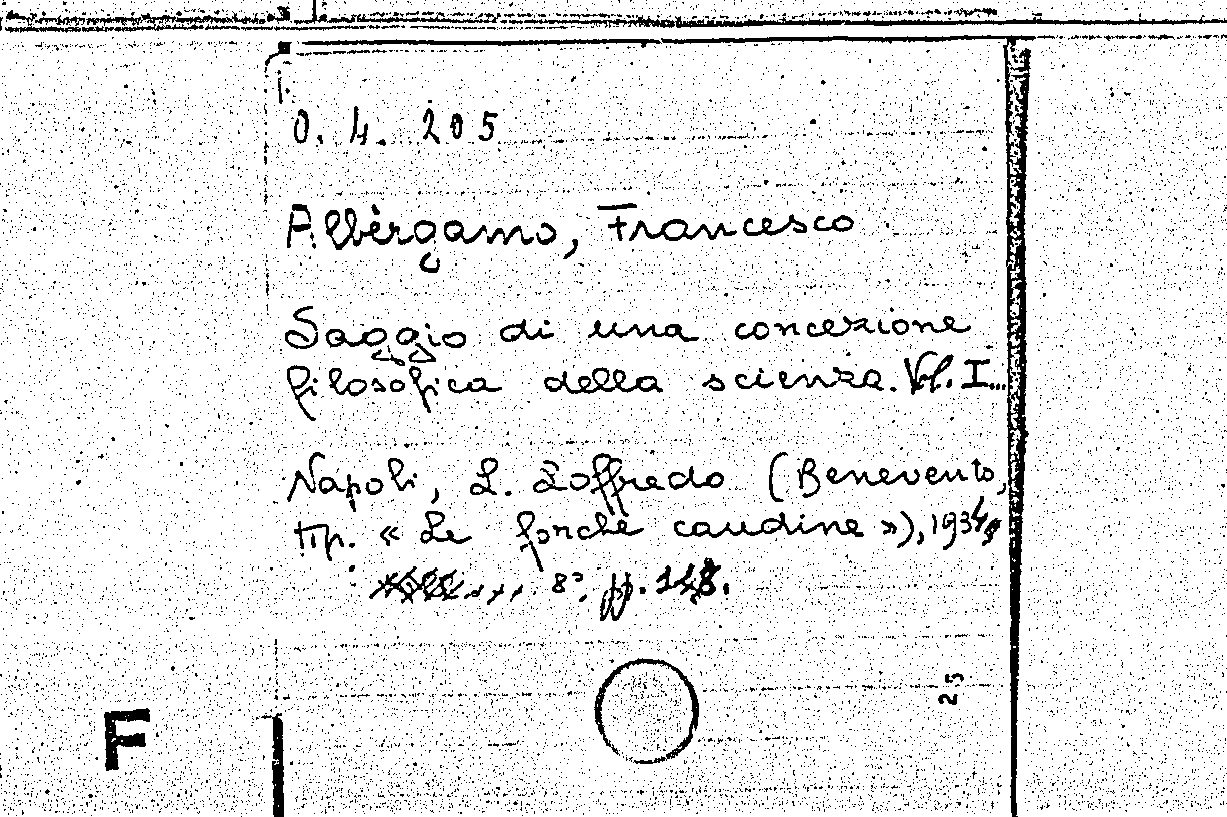 0. 4. 205
Albèrgamo, Francesco
Saggio di una concezione
filosofica della scienza. Vol. I...
Napoli, L. Loffredo (Benevento,
tip. « Le forche caudine »), 1934,
8º, pp. 148.
25
F